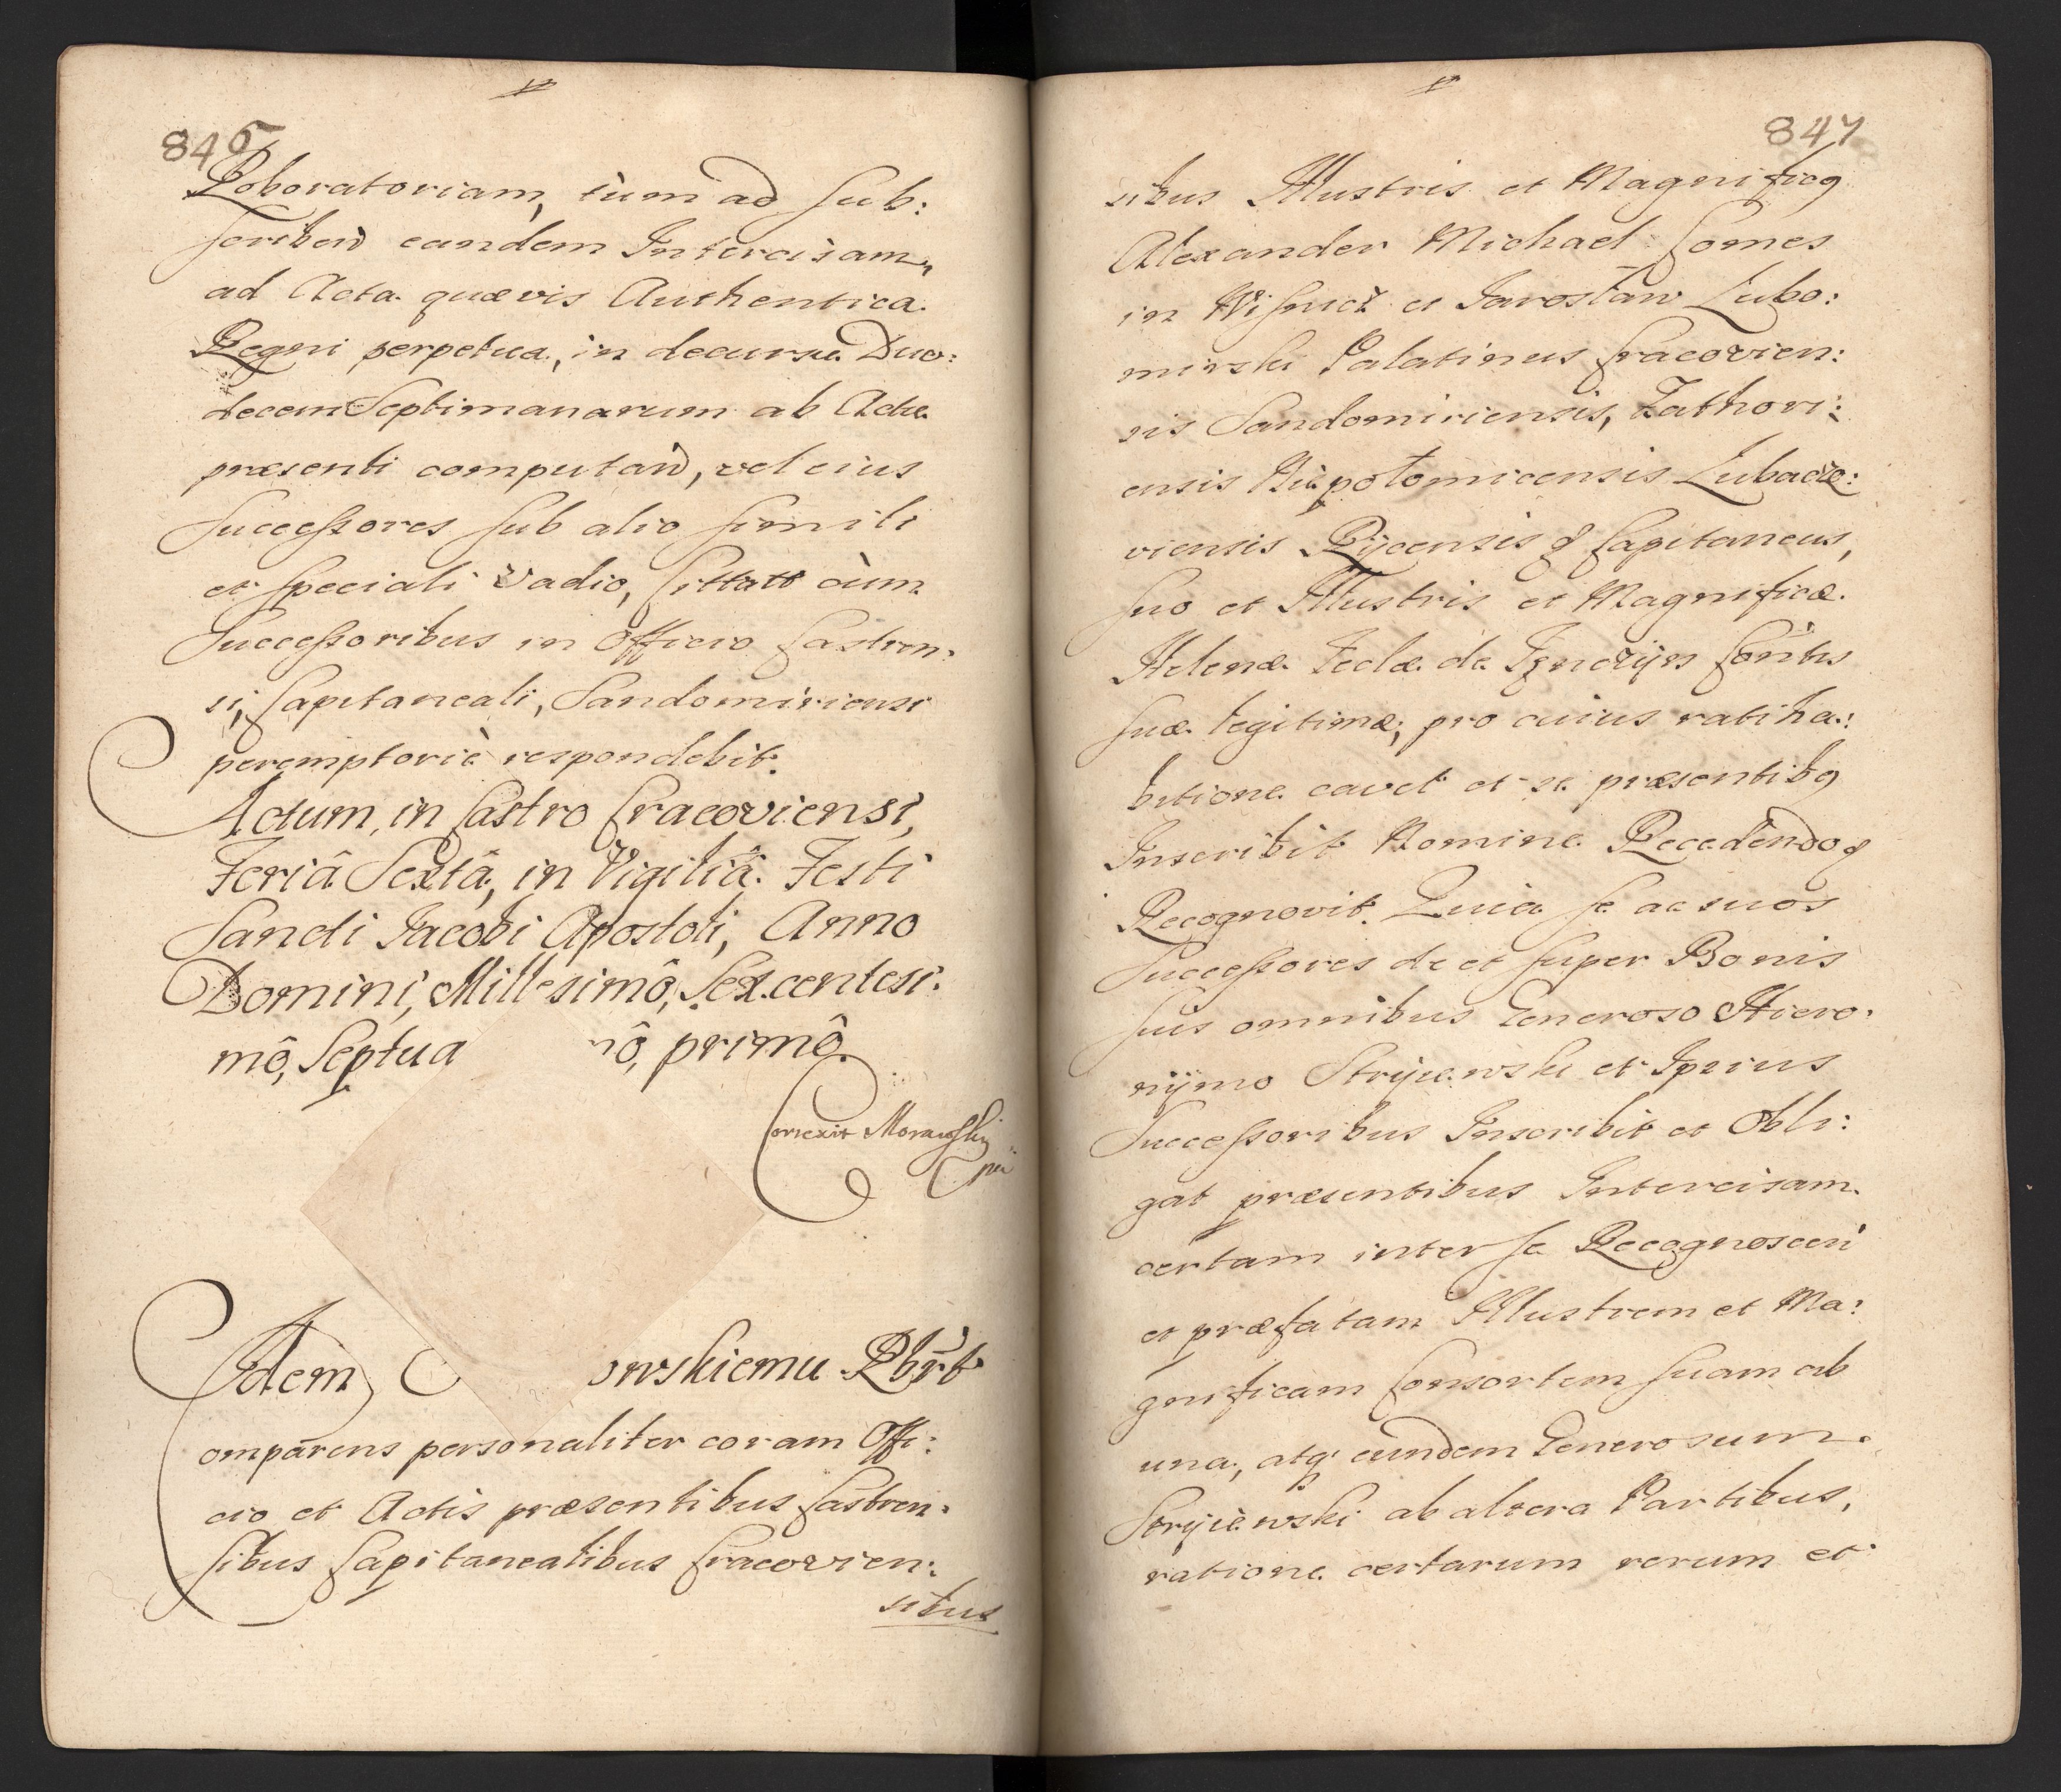 846
Roboratoriam, tùm ad sub:
scribend eandem Intercisam,
ad Acta quævis Authentica
Regni perpetua, in decursu Duo:
decem Septimanarum ab Actu
præsenti computand, vel eius
Successores sub alio simili
et speciali Vadio, Cittatt cùm
Successoribus in Officio Castren:
si, Capitaneali, Sandomiriensi
peremptoriè respondebit.
Actum, in Castro Cracoviensi,
Feriâ Sextâ, in Vigiliâ Festi
Sancti Jacobi Apostoli, Anno
Domini, Millesimô, Sex.centesi:
mô, Septua mô, primô.
Correxit Morawski
Idem wskiemu Rbrt
omparens personaliter coram Offi:
cio et Actis præsentibus Castren:
sibus Capitanealibus Cracovien:
sibus
847
sibus Illustris et Magnificq
Alexander Michael Comes
in Wisnicz et Jarosław Lubo:
mirski Palatinus Cracovien:
sis Sandomiriensis, Zathori:
ensis Niepołomicensis Lubaczo:
viensis Rycensis q Capitaneus,
suo et Illustris et Magnificæ
Helenæ Teclæ de Tęnczyn Contis
suæ legitimæ, pro cuius ratiha:
bitione cavet et se præsentibq
Inscribit Nomine Recedendoq
Recognovit. Quia se ac suos
Successores de et super Bonis
suis omnibus Generoso Hiero:
nÿmo Stryiewski et Ipsius
Successoribus Inscribit et Obli:
gat præsentibus Intercisam
certam inter se Recognosceri
et præfatam Illustrem et Ma:
gnificam Consortem suam ab
una, atq eundem Generosum
Stryiewski ab altera Partibus,
ratione certarum rerum et